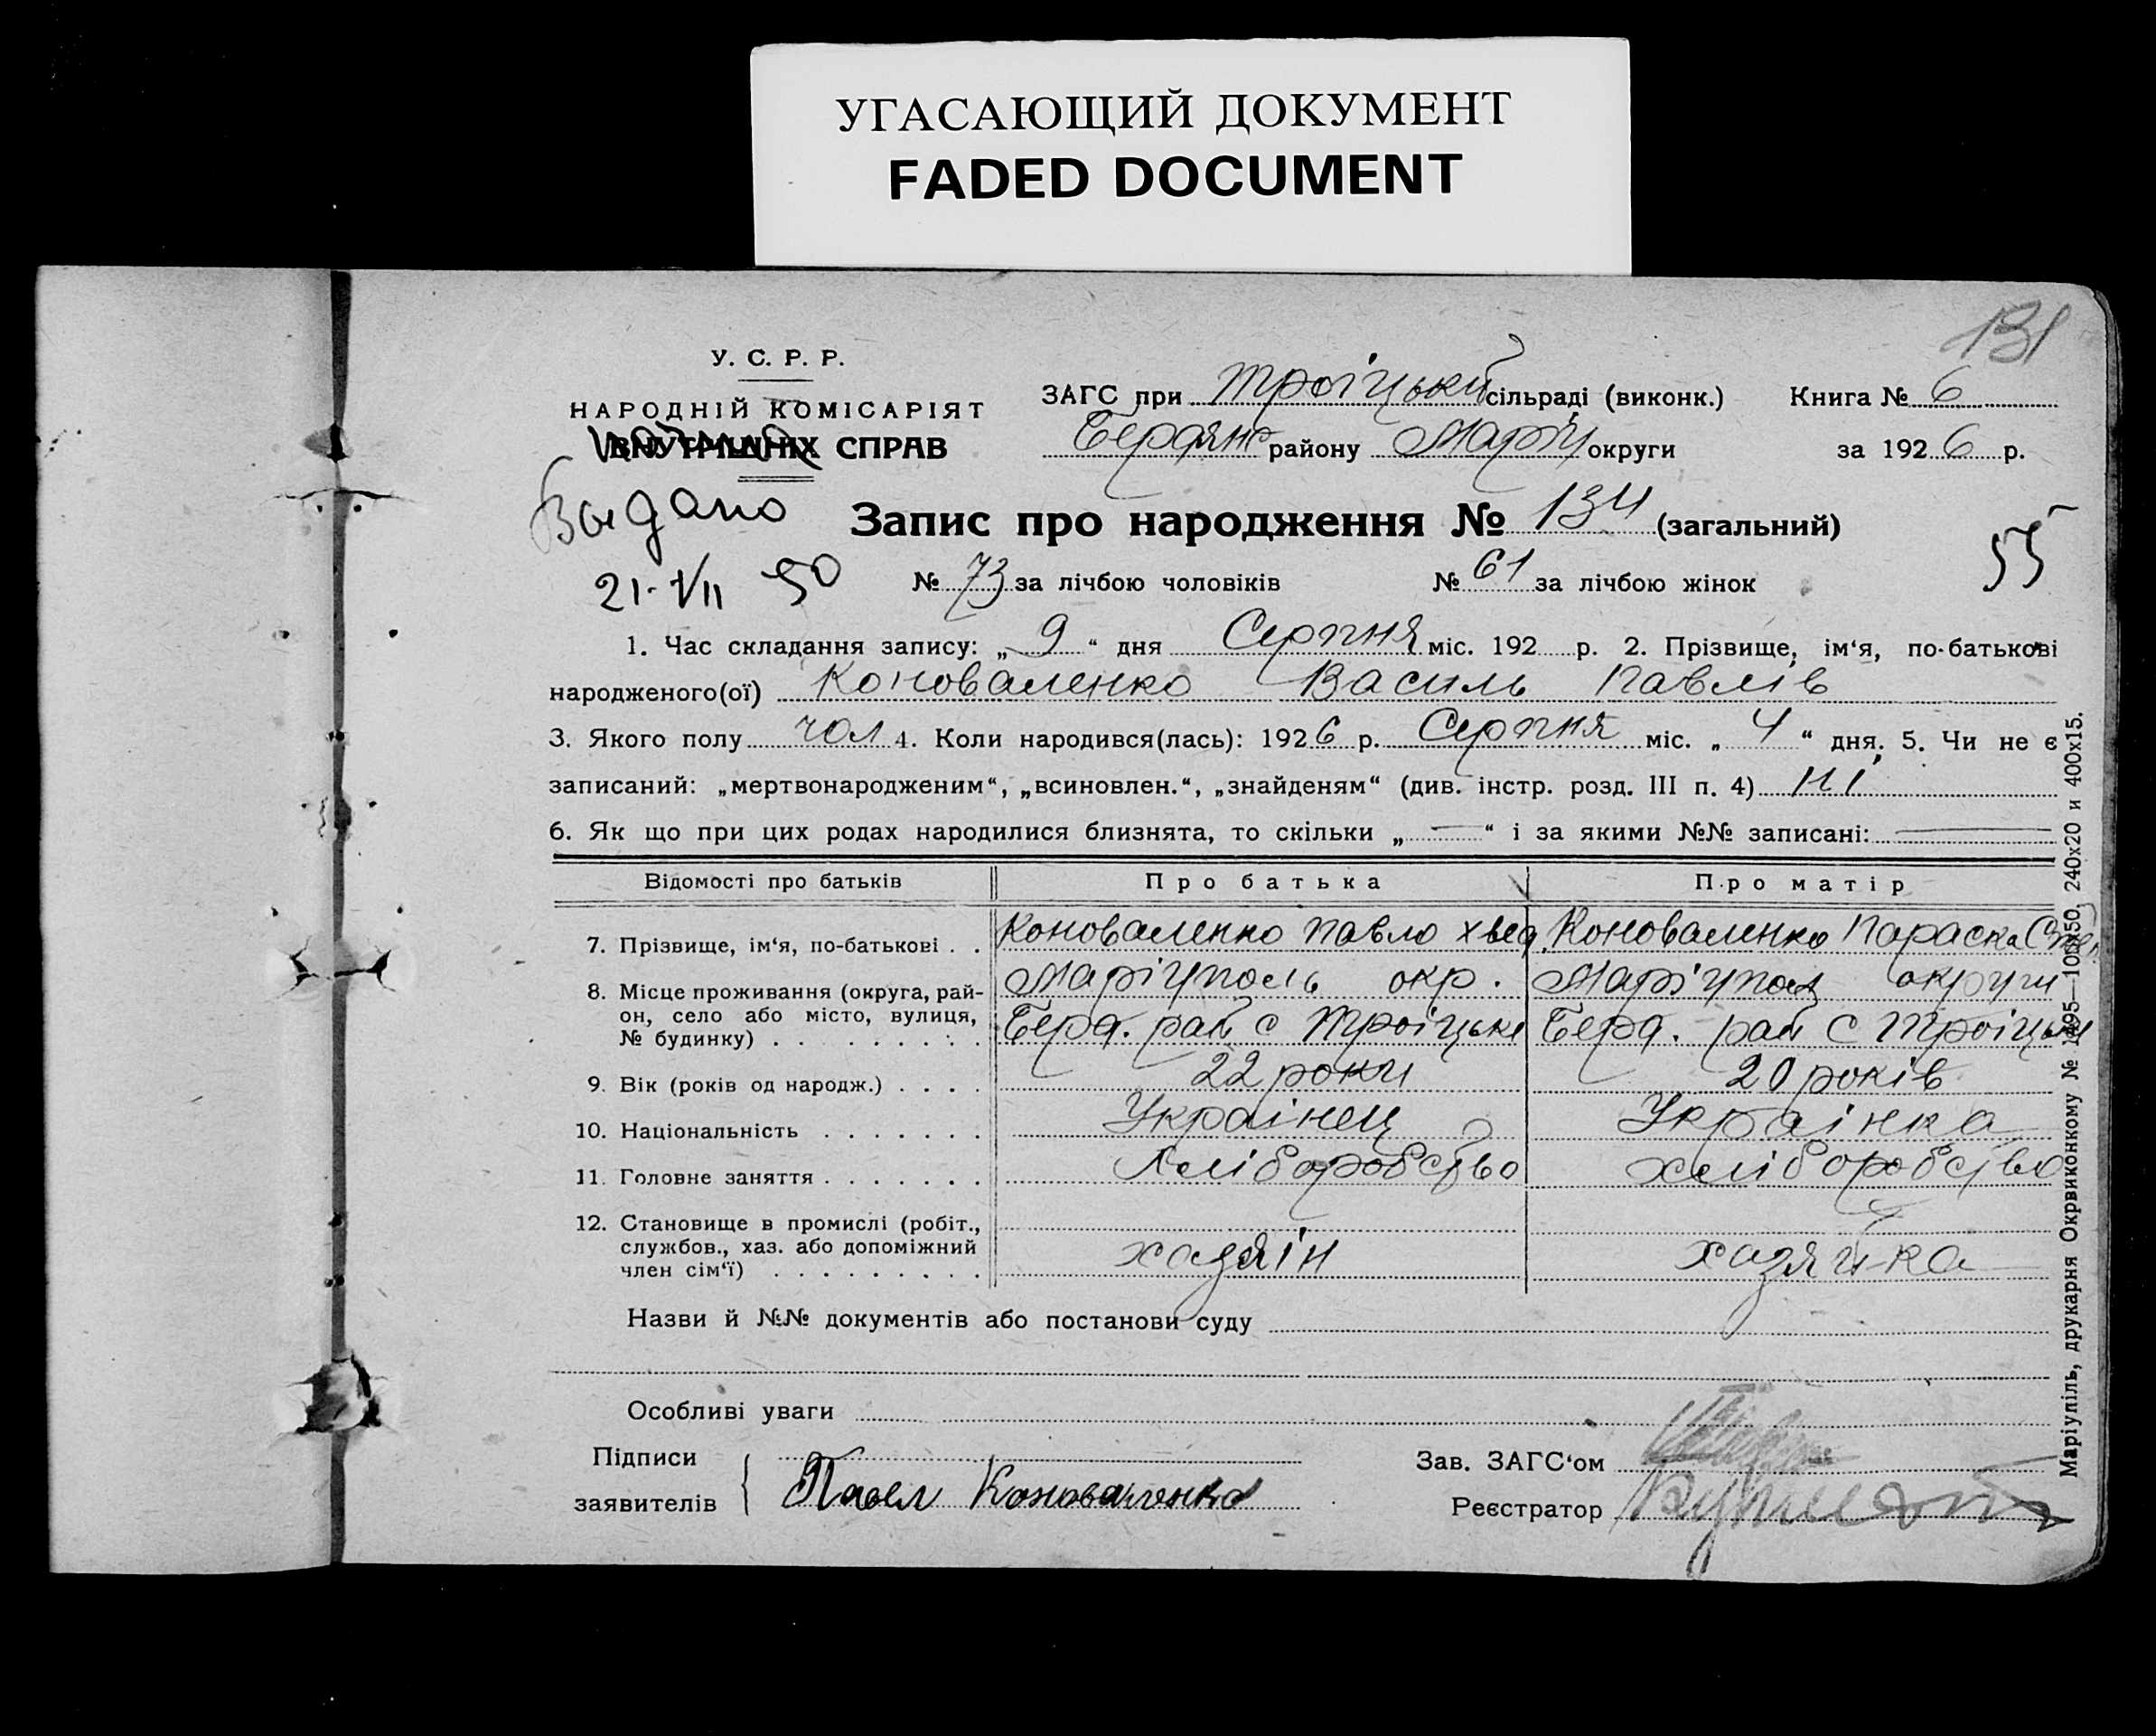 УГАСАЮЩИЙ ДОКУМЕНТ
FADED DOCUMENT
131
У. С. Р. Р.
НАРОДНІЙ КОМІСАРІЯТ
ВНУТРІШНІХ СПРАВ
ЗАГС при Троіцькій сільраді (виконк.) Книга № 6
Бердянс району Маріу округи за 1926 р.
Выдано
21-VII 50
Запис про народження № 134 (загальний)
55
№ 73 за лічбою чоловіків № 61 за лічбою жінок
1. Час складання запису: „ 9 “ дня Серпня міс. 192 р. 2. Прізвище, ім‘я, по-батькові
народженого(ої) Коноваленко Василь Павлів
3. Якого полу чол 4. Коли народився(лась): 1926 р. Серпня міс. „ 4 “ дня. 5. Чи не є
записаний: „мертвонародженим“, „всиновлен.“, „знайденям“ (див. інстр. розд. III п. 4) ні
6. Як що при цих родах народилися близнята, то скільки „ — “ і за якими №№ записані: —
Відомості про батьків Про батька Про матір
7. Прізвище, ім‘я, по-батькові . . Коноваленко Павло Хвед. Коноваленко Параска Степ
8. Місце проживання (округа, рай- Маріуполь окр. Маріупол округи
он, село або місто, вулиця, Берд. рай с Троіцьке Берд. рай с Троіцьке
№ будинку) . . . . . . . . .
9. Вік (років од народж.) . . . . 22 роки 20 років
10. Національність . . . . . . . Украінец Украінка
11. Головне заняття . . . . . . . Хліборобство хліборобство
12. Становище в промислі (робіт.,
службов., хаз. або допоміжний хазяін хазяйка
член сім‘ї) . . . . . . . . .
Назви й №№ документів або постанови суду
Особливі уваги
Підписи
заявителів Павел Коноваленко
Зав. ЗАГС‘ом
Реєстратор
Маріупіль, друкарня Окрвиконкому № 1495—100х50, 240х20 и 400х15.